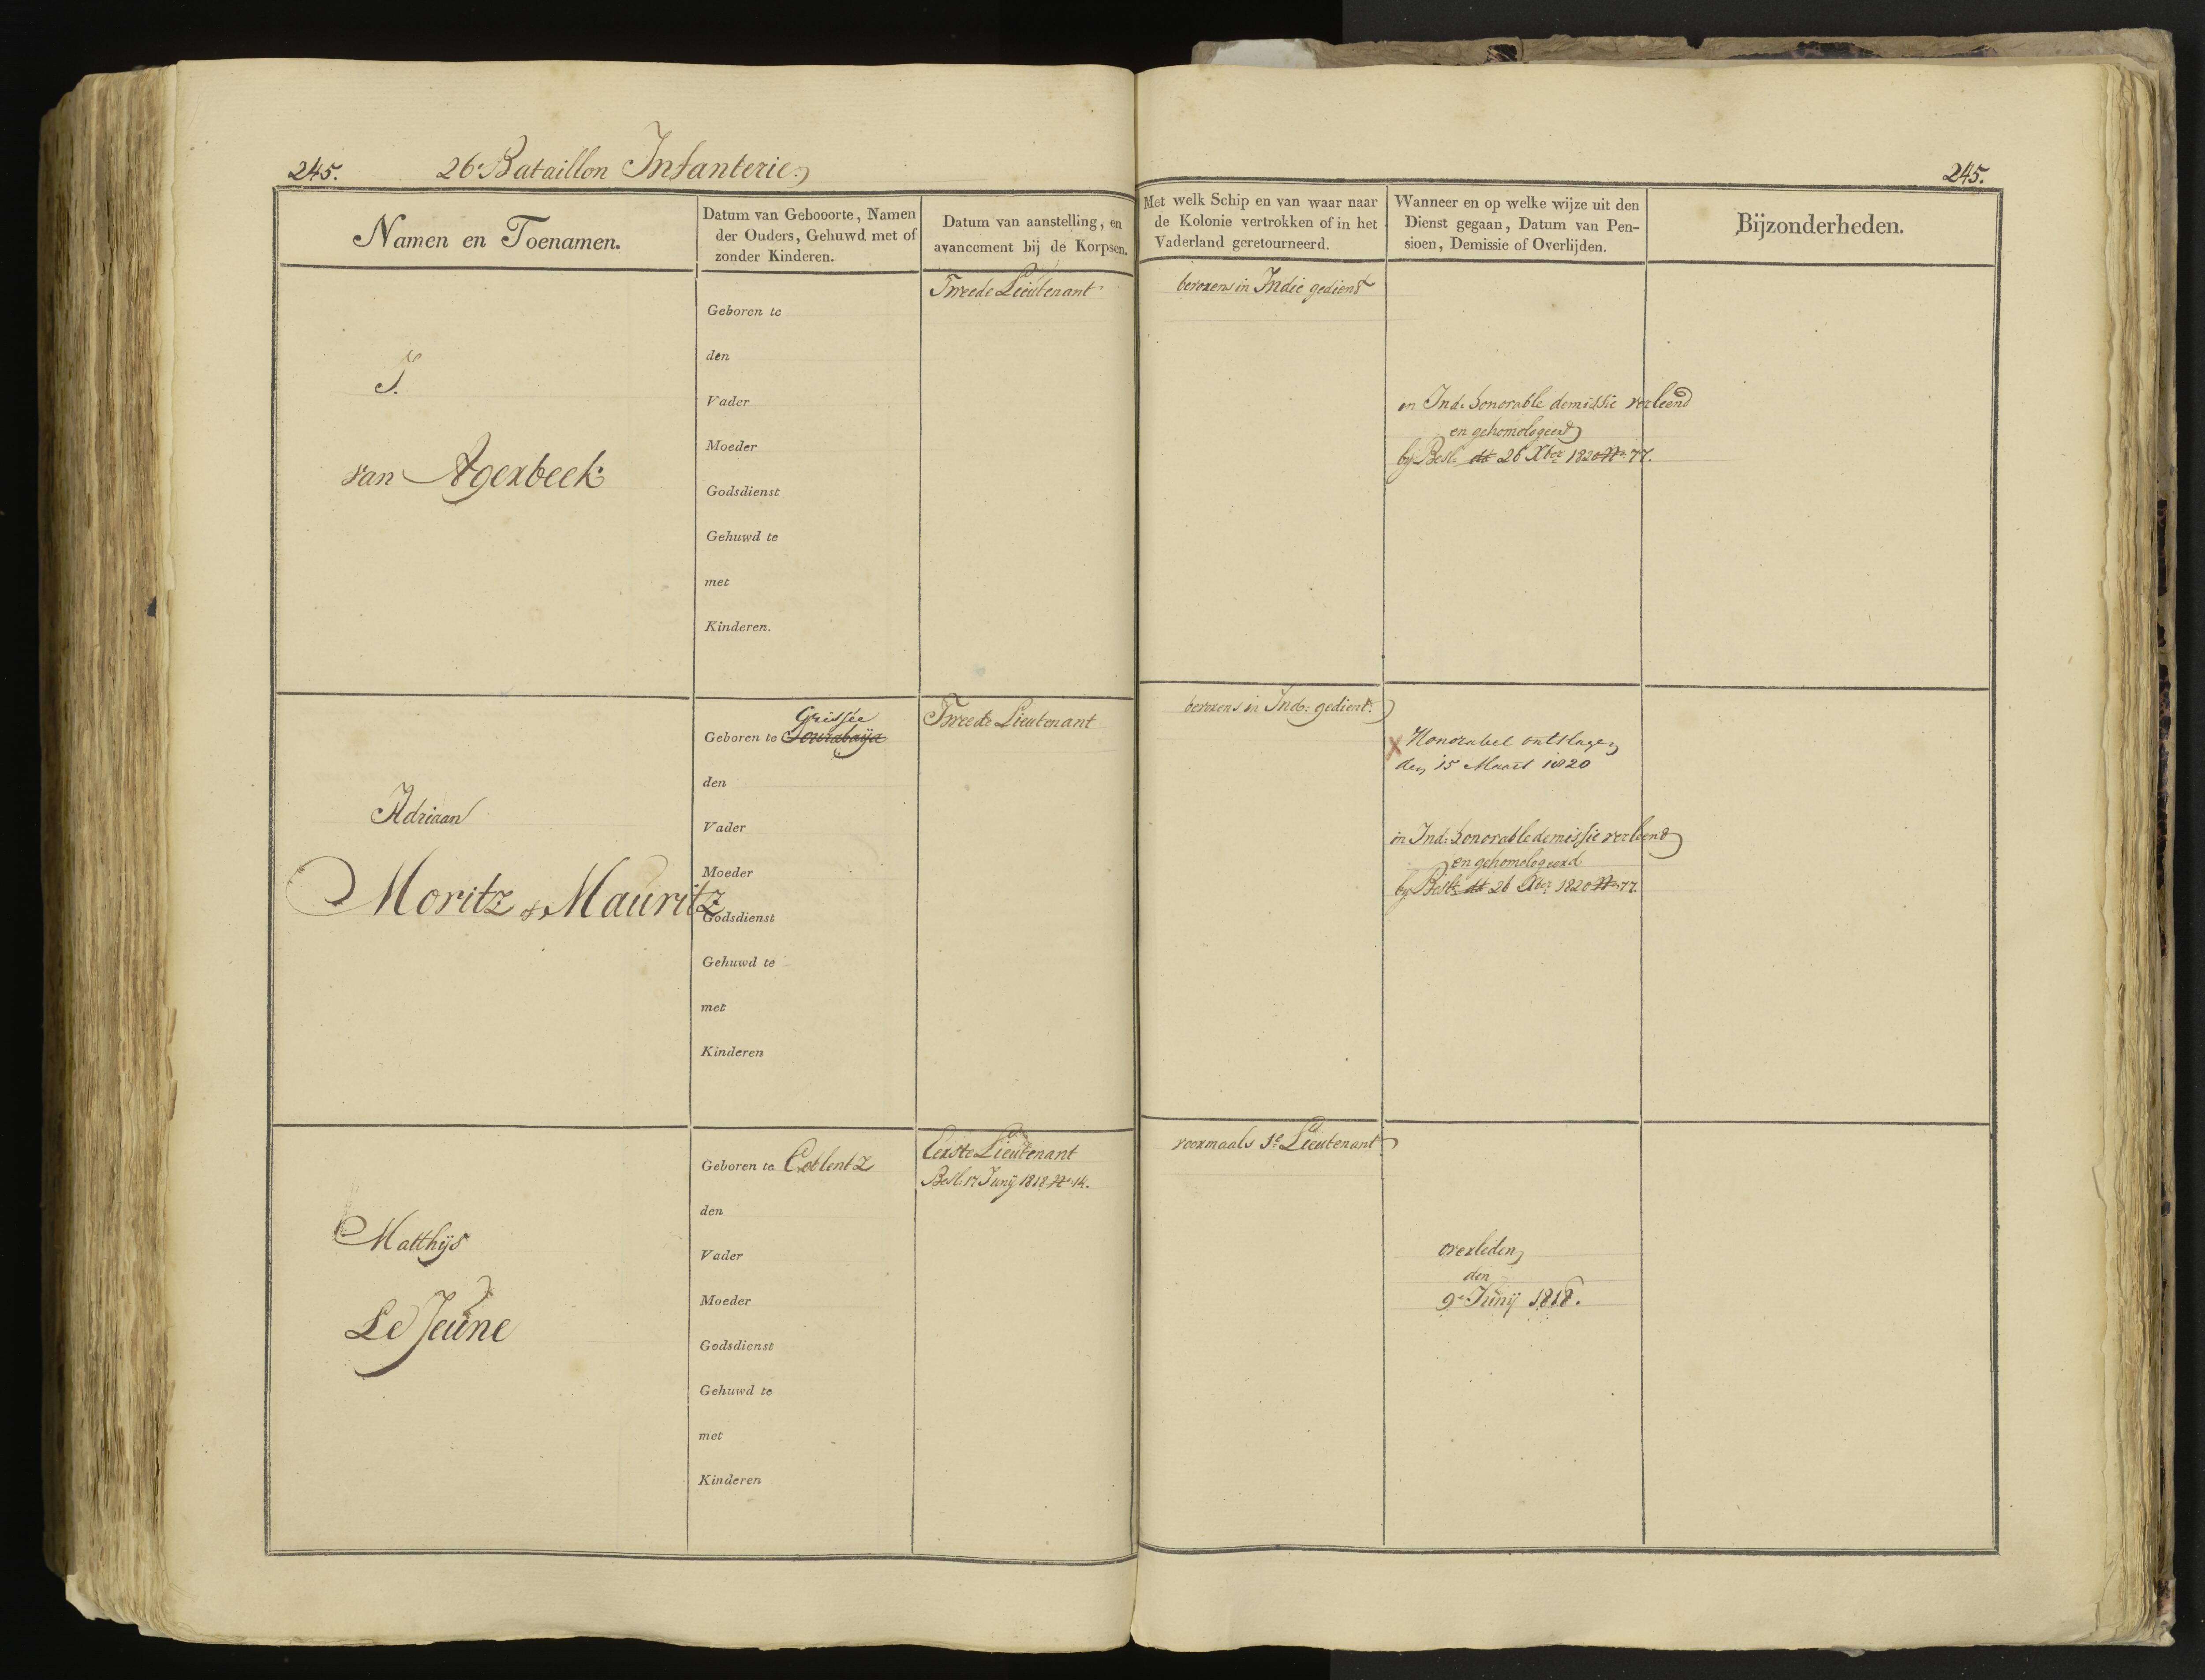 245.
26e Bataillon Infanterie
245.
Namen en Toenamen.
Datum van Gebooorte, Namen
der Ouders, Gehuwd met of
zonder Kinderen.
Datum van aanstelling, en
avancement bij de Korpsen.
Met welk Schip en van waar naar
de Kolonie vertrokken of in het
Vaderland geretourneerd.
Wanneer en op welke wijze uit den
Dienst gegaan, Datum van Pen-
sioen, Demissie of Overlijden.
Bijzonderheden.
J.
van Agerbeek
Geboren te
den
Vader
Moeder
Godsdienst
Gehuwd te
met
Kinderen.
Tweede Lieutenant
bevorens in Indie gediend
in Ind: honorable demissie verleend
en gehomologeerd
by Besl: dd 26 Xber 1820 No 77.
Adriaan
Moritz of Mauritz
Grissée
Geboren te Sourabaÿa
den
Vader
Moeder
Godsdienst
Gehuwd te
met
Kinderen
Tweede Lieutenant
bevorens in Ind: gediend
X Honorabel ontslagen
den 15 Maart 1820
in Ind: honorable demissie verleend
en gehomologeerd
by Besl: dd 26 Xber 1820 No 77.
Matthijs
Le Jeune
Geboren te Coblentz
den
Vader
Moeder
Godsdienst
Gehuwd te
met
Kinderen
Eerste Lieutenant
Besl: 17 Junij 1818 No 14.
voormaals 1e Lieutenant
overleden
den
9e Junij 1818.